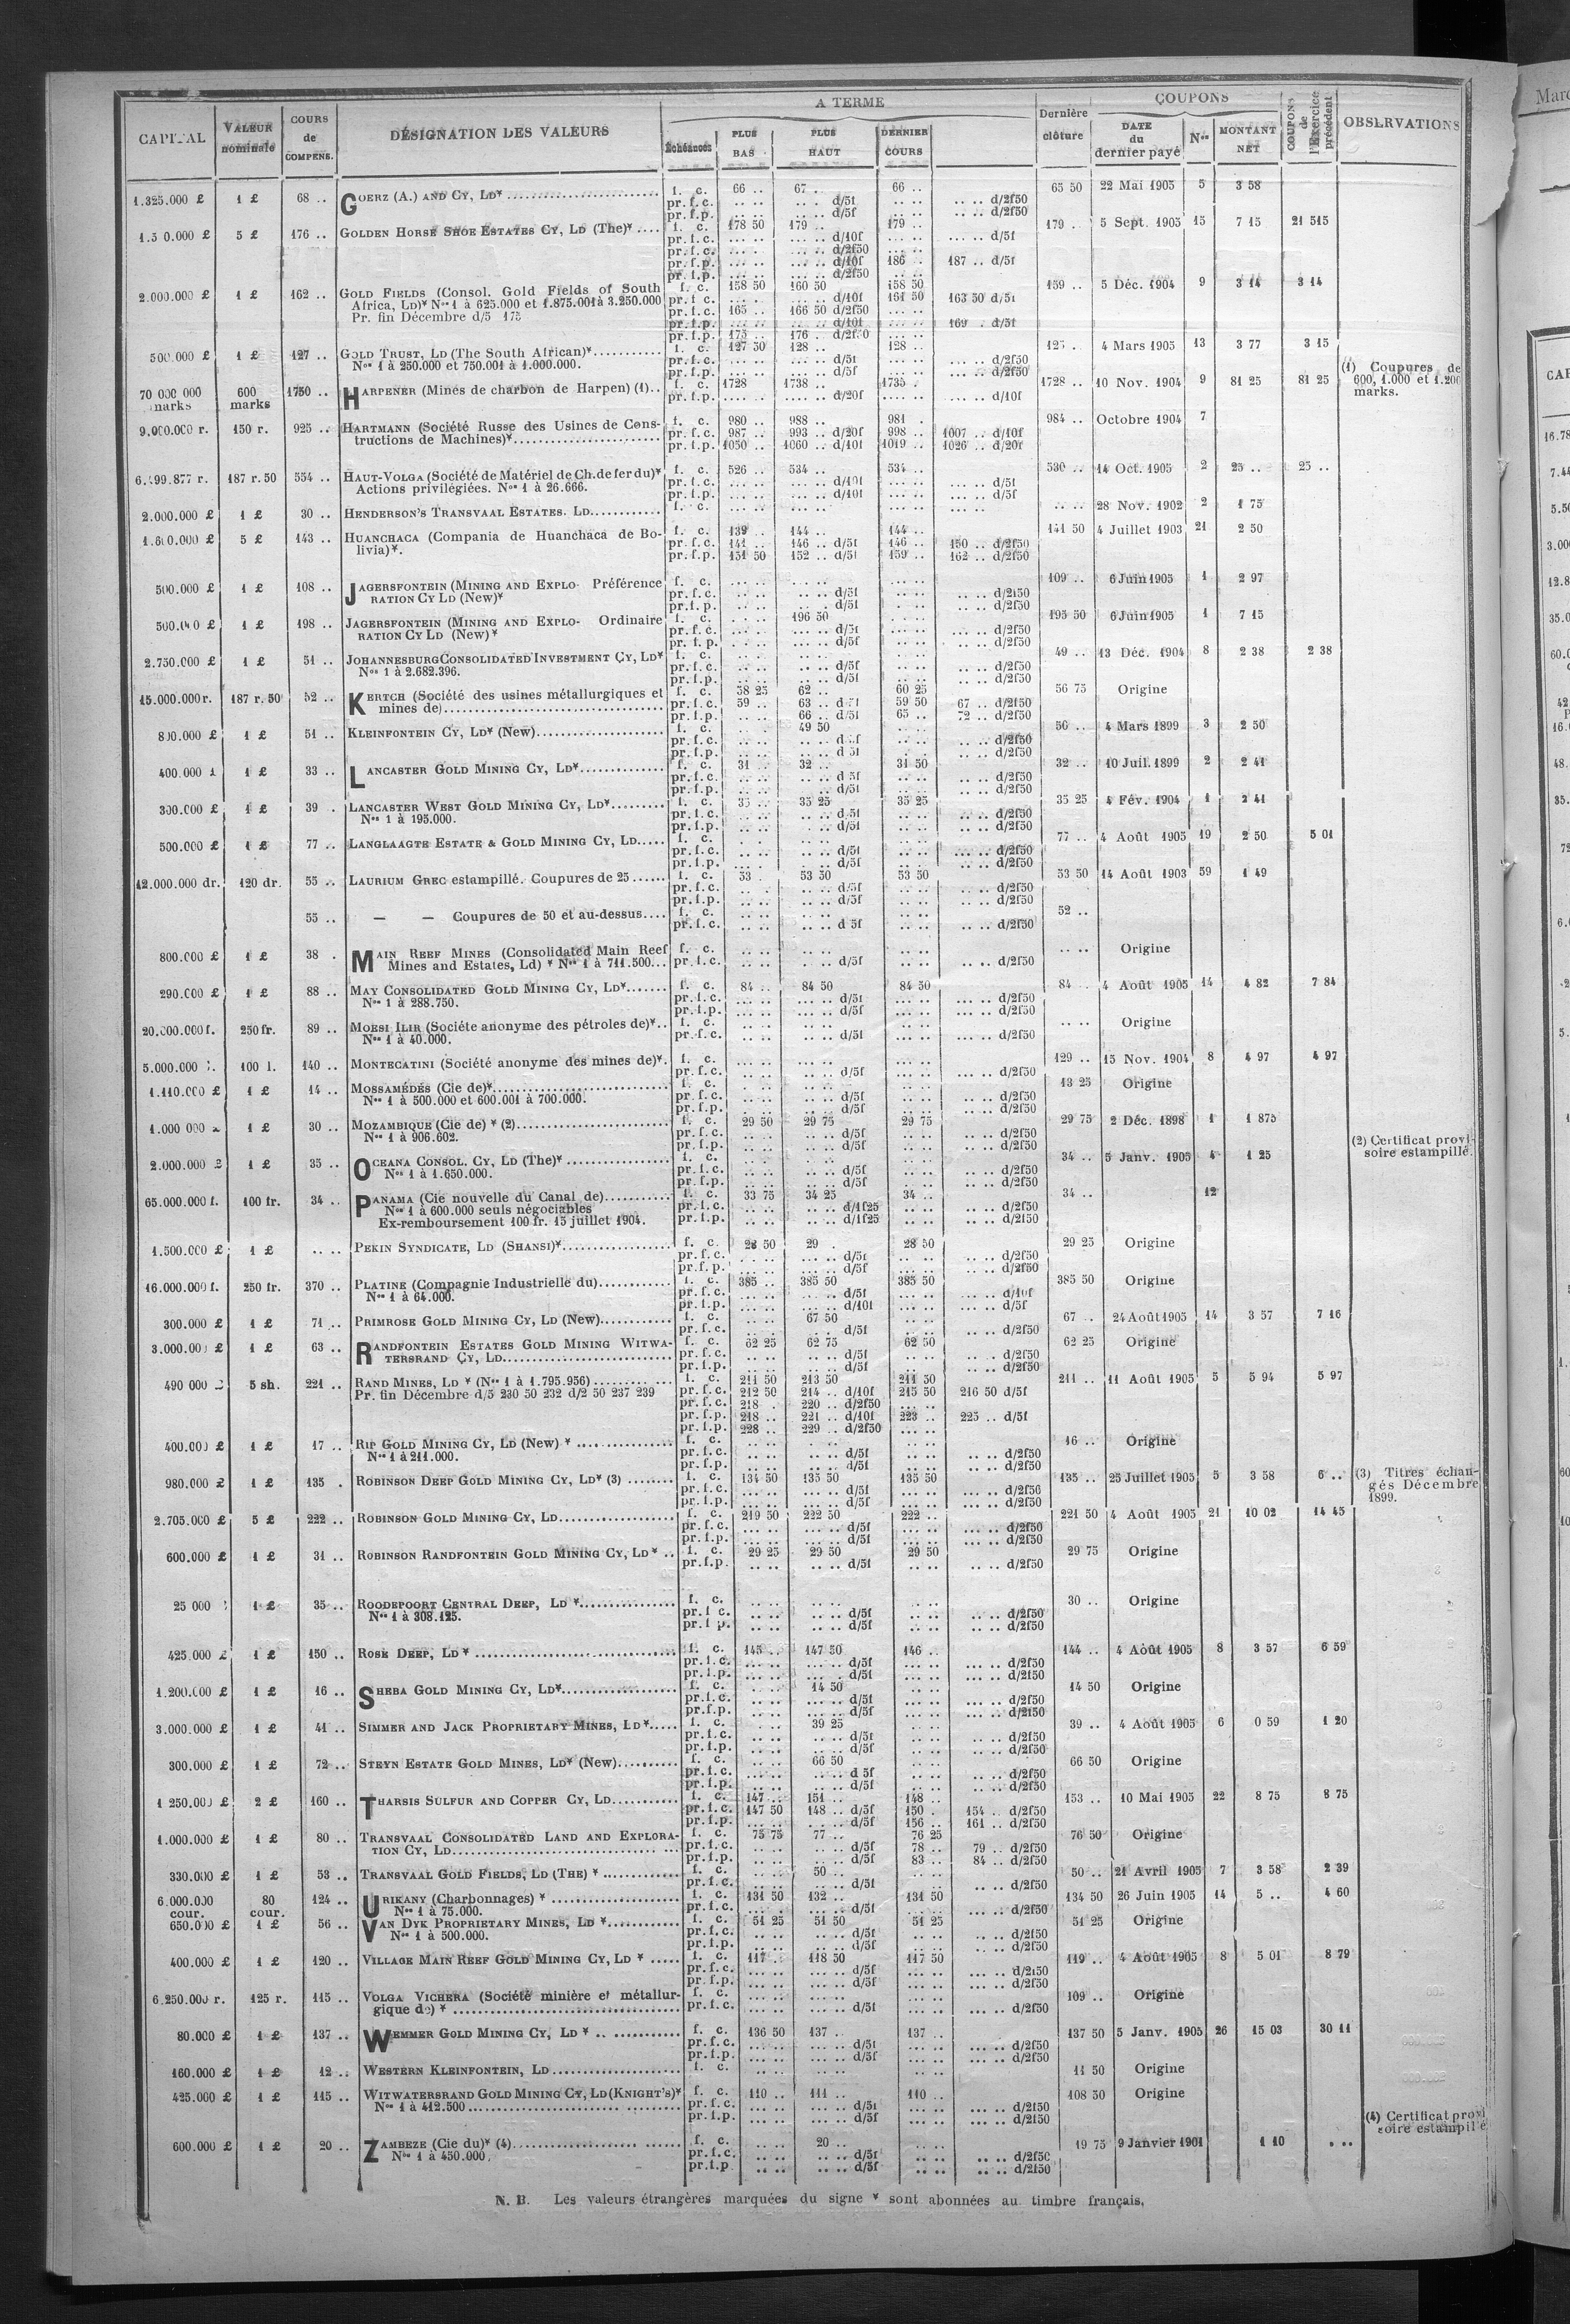 A TERME
COUPONS
CAPITAL
VALEUR nominale
COURS de COMPENS.
DÉSIGNATION DES VALEURS
Échéances
PLUS BAS
PLUS HAUT
DERNIER COURS
Dernière clôture
DATE du dernier payé
Nos
MONTANT NET
COUPONS de l'Exercice précédent
OBSERVATIONS
1.325.000 £ 1 £ 68 .. GOERZ (A.) AND CY, LD* f. c. 66 .. 67 .. 66 .. 65 50 22 Mai 1905 5 3 58
pr. f. c. d/5f d/2f50
pr. f. p. d/5f d/2f50
5 £ 176 .. GOLDEN HORSE SHOE ESTATES CY, LD (The)* f. c. 178 50 179 .. 179 .. 179 .. 5 Sept. 1905 15 7 15 21 515
pr. f. c. d/10f d/5f
pr. f. c. d/2f50
pr. f. p. d/10f 186 .. 187 .. d/5f
pr. f. p. d/2f50
2.000.000 £ 1 £ 162 .. GOLD FIELDS (Consol. Gold Fields of South f. c. 158 50 160 50 158 50 159 .. 5 Déc. 1904 9 3 14 3 14
Africa, LD)* Nos 1 à 625.000 et 1.875.001 à 3.250.000 pr. f. c. d/10f 161 50 163 50 d/5f
Pr. fin Décembre d/5 175 pr. f. c. 165 .. 166 50 d/2f50
pr. f. p. d/10f 169 . d/5f
pr. f. p. 175 .. 176 .. d/2f50
500.000 £ 1 £ 127 .. GOLD TRUST, LD (The South African)* f. c. 127 50 128 .. 128 .. 4 Mars 1905 13 3 77 3 15
Nos 1 à 250.000 et 750.001 à 1.000.000. pr. f. c. d/5f d/2f50
pr. f. p. d/5f d/2f50
70 000 000 marks 600 marks 1750 .. HARPENER (Mines de charbon de Harpen) (1) f. c. 1728 1738 .. 1735 . 1728 .. 10 Nov. 1904 9 81 25 81 25 (1) Coupures de 600, 1.000 et 1.200 marks.
pr. f. p. d/20f d/10f
9.000.000 r. 150 r. 925 .. HARTMANN (Société Russe des Usines de Cons- f. c. 980 .. 988 .. 981 . 984 .. Octobre 1904 7
tructions de Machines)* pr. f. c. 987 .. 993 .. d/20f 998 .. 1007 .. d/10f
pr. f. p. 1050 .. 1060 .. d/10f 1019 .. 1026 .. d/20f
187 r. 50 554 .. HAUT-VOLGA (Société de Matériel de Ch. de fer du)* f. c. 526 .. 534 .. 534 .. 530 .. 14 Oct. 1905 2 25 .. 25 ..
Actions privilégiées. Nos 1 à 26.666. pr. f. c. d/10f d/5f
pr. f. p. d/10f d/5f
2.000.000 £ 1 £ 30 .. HENDERSON'S TRANSVAAL ESTATES. LD f. c. 28 Nov. 1902 2 1 75
5 £ 143 .. HUANCHACA (Compania de Huanchaca de Bo- f. c. 139 144 .. 144 .. 141 50 4 Juillet 1903 21 2 50
livia)*. pr. f. c. 141 .. 146 .. d/5f 146 .. 150 .. d/2f50
pr. f. p. 151 50 152 .. d/5f 159 .. 162 .. d/2f50
500.000 £ 1 £ 108 .. JAGERSFONTEIN (MINING AND EXPLO- Préférence f. c. 109 .. 6 Juin 1905 1 2 97
RATION CY LD (New)* pr. f. c. d/5f d/2f50
pr. f. p. d/5f d/2f50
500.000 £ 1 £ 198 .. JAGERSFONTEIN (MINING AND EXPLO- Ordinaire f. c. 196 50 195 50 6 Juin 1905 1 7 15
RATION CY LD (New)* pr. f. c. d/5f d/2f50
pr. f. p. d/5f d/2f50
2.750.000 £ 1 £ 51 .. JOHANNESBURG CONSOLIDATED INVESTMENT CY, LD* f. c. 49 .. 13 Déc. 1904 8 2 38 2 38
Nos 1 à 2.682.396. pr. f. c. d/5f d/2f50
pr. f. p. d/5f d/2f50
15.000.000 r. 187 r. 50 52 .. KERTCH (Société des usines métallurgiques et f. c. 58 25 62 .. 60 25 56 75 Origine
mines de) pr. f. c. 59 .. 63 .. d/5f 59 50 67 .. d/2f50
pr. f. p. 66 .. d/5f 65 .. 72 .. d/2f50
800.000 £ 1 £ 51 .. KLEINFONTEIN CY, LD* (New) f. c. 49 50 50 .. 4 Mars 1899 3 2 50
pr. f. c. d/5f d/2f50
pr. f. p. d/5f d/2f50
400.000 £ 1 £ 33 .. LANCASTER GOLD MINING CY, LD* f. c. 31 . 32 .. 31 50 32 .. 10 Juil. 1899 2 2 41
pr. f. c. d/5f d/2f50
pr. f. p. d/5f d/2f50
300.000 £ 1 £ 39 . LANCASTER WEST GOLD MINING CY, LD* f. c. 35 .. 35 25 35 25 35 25 4 Fév. 1904 1 2 41
Nos 1 à 195.000. pr. f. c. d/5f d/2f50
pr. f. p. d/5f d/2f50
500.000 £ 1 £ 77 .. LANGLAAGTE ESTATE & GOLD MINING CY, LD f. c. 77 .. 4 Août 1905 19 2 50 5 01
pr. f. c. d/5f d/2f50
pr. f. p. d/5f d/2f50
12.000.000 dr. 120 dr. 55 .. LAURIUM GREC estampillé. Coupures de 25 f. c. 53 . 53 50 53 50 53 50 14 Août 1903 59 1 49
pr. f. c. d/5f d/2f50
pr. f. p. d/5f d/2f50
55 .. — — Coupures de 50 et au-dessus f. c. 52 ..
pr. f. c. d/5f d/2f50
800.000 £ 1 £ 38 . MAIN REEF MINES (Consolidated Main Reef f. c. Origine
Mines and Estates, Ld) * Nos 1 à 711.500 pr. f. c. d/5f d/2f50
290.000 £ 1 £ 88 .. MAY CONSOLIDATED GOLD MINING CY, LD* f. c. 84 .. 84 50 84 50 84 .. 4 Août 1905 14 4 82 7 84
Nos 1 à 288.750. pr. f. c. d/5f d/2f50
pr. f. p. d/5f d/2f50
20.000.000 f. 250 fr. 89 .. MOESI ILIR (Sociéte anonyme des pétroles de)* f. c. Origine
Nos 1 à 40.000. pr. f. c. d/5f d/2f50
5.000.000 l. 100 l. 140 .. MONTECATINI (Société anonyme des mines de)*. f. c. 129 .. 15 Nov. 1904 8 4 97 4 97
pr. f. c. d/5f d/2f50
1.110.000 £ 1 £ 14 .. MOSSAMÉDÉS (Cie de)* f. c. 13 25 Origine
Nos 1 à 500.000 et 600.001 à 700.000. pr. f. c. d/5f d/2f50
pr. f. p. d/5f d/2f50
1.000 000 £ 1 £ 30 .. MOZAMBIQUE (Cie de) * (2) f. c. 29 50 29 75 29 75 29 75 2 Déc. 1898 1 1 875
Nos 1 à 906.602. pr. f. c. d/5f d/2f50 (2) Certificat provi-
pr. f. p. d/5f d/2f50 soire estampillé.
2.000.000 £ 1 £ 35 .. OCEANA CONSOL. CY, LD (The)* f. c. 34 .. 5 Janv. 1905 4 1 25
Nos 1 à 1.650.000. pr. f. c. d/5f d/2f50
pr. f. p. d/5f d/2f50
65.000.000 f. 100 fr. 34 .. PANAMA (Cie nouvelle du Canal de) f. c. 33 75 34 25 34 .. 34 .. 12
Nos 1 à 600.000 seuls négociables pr. f. c. d/1f25 d/2f50
Ex-remboursement 100 fr. 15 juillet 1904. pr. f. p. d/1f25 d/2f50
1.500.000 £ 1 £ PEKIN SYNDICATE, LD (SHANSI)* f. c. 28 50 29 . 28 50 29 25 Origine
pr. f. c. d/5f d/2f50
pr. f. p. d/5f d/2f50
16.000.000 f. 250 fr. 370 .. PLATINE (Compagnie Industrielle du) f. c. 385 .. 385 50 385 50 385 50 Origine
Nos 1 à 64.000. pr. f. c. d/5f d/10f
pr. f. p. d/10f d/5f
300.000 £ 1 £ 71 .. PRIMROSE GOLD MINING CY, LD (New) f. c. 67 50 67 .. 24 Août 1905 14 3 57 7 16
pr. f. c. d/5f d/2f50
3.000.000 £ 1 £ 63 .. RANDFONTEIN ESTATES GOLD MINING WITWA- f. c. 62 25 62 75 62 50 62 25 Origine
TERSRAND CY, LD pr. f. c. d/5f d/2f50
pr. f. p. d/5f d/2f50
490 000 £ 5 sh. 221 .. RAND MINES, LD * (Nos 1 à 1.795.956) f. c. 211 50 213 50 211 50 211 .. 11 Août 1905 5 5 94 5 97
Pr. fin Décembre d/5 230 50 232 d/2 50 237 239 pr. f. c. 212 50 214 .. d/10f 215 50 216 50 d/5f
pr. f. c. 218 . 220 .. d/2f50
pr. f. p. 218 .. 221 .. d/10f 223 .. 225 .. d/5f
pr. f. p. 228 .. 229 .. d/2f50
400.000 £ 1 £ 17 .. RIP GOLD MINING CY, LD (New) * f. c. 16 .. Origine
Nos 1 à 211.000. pr. f. c. d/5f d/2f50
pr. f. p. d/5f d/2f50
980.000 £ 1 £ 135 . ROBINSON DEEP GOLD MINING CY, LD* (3) f. c. 134 50 135 50 135 50 135 .. 25 Juillet 1905 5 3 58 6 .. (3) Titres échan-
pr. f. c. d/5f d/2f50 gés Décembre
pr. f. p. d/5f d/2f50 1899.
2.705.000 £ 5 £ 222 .. ROBINSON GOLD MINING CY, LD f. c. 219 50 222 50 222 .. 221 50 4 Août 1905 21 10 02 14 45
pr. f. c. d/5f d/2f50
pr. f. p. d/5f d/2f50
600.000 £ 1 £ 31 .. ROBINSON RANDFONTEIN GOLD MINING CY, LD * f. c. 29 25 29 50 29 50 29 75 Origine
pr. f. p. d/5f d/2f50
25 000 1 £ 35 .. ROODEPOORT CENTRAL DEEP, LD * f. c. 30 .. Origine
Nos 1 à 308.125. pr. f c. d/5f d/2f50
pr. f p. d/5f d/2f50
425.000 £ 1 £ 150 .. ROSE DEEP, LD * f. c. 145 .. 147 50 146 .. 144 .. 4 Août 1905 8 3 57 6 59
pr. f. c. d/5f d/2f50
pr. f. p. d/5f d/2f50
1.200.000 £ 1 £ 16 .. SHEBA GOLD MINING CY, LD* f. c. 14 50 14 50 Origine
pr. f. c. d/5f d/2f50
pr. f. p. d/5f d/2f50
3.000.000 £ 1 £ 41 .. SIMMER AND JACK PROPRIETARY MINES, LD* f. c. 39 25 39 .. 4 Août 1905 6 0 59 1 20
pr. f. c. d/5f d/2f50
pr. f. p. d/5f d/2f50
300.000 £ 1 £ 72 .. STEYN ESTATE GOLD MINES, LD* (New) f. c. 66 50 66 50 Origine
pr. f. c. d 5f d/2f50
pr. f. p. d/5f d/2f50
1 250.000 £ 2 £ 160 .. THARSIS SULFUR AND COPPER CY, LD f. c. 147 .. 151 .. 148 .. 153 .. 10 Mai 1905 22 8 75 8 75
pr. f. c. 147 50 148 .. d/5f 150 . 154 .. d/2f50
pr. f. p. d/5f 156 .. 161 .. d/2f50
1.000.000 £ 1 £ 80 .. TRANSVAAL CONSOLIDATED LAND AND EXPLORA- f. c. 75 75 77 .. 76 25 76 50 Origine
TION CY, LD pr. f. c. d/5f 78 .. 79 .. d/2f50
pr. f. p. d/5f 83 .. 84 .. d/2f50
330.000 £ 1 £ 53 .. TRANSVAAL GOLD FIELDS, LD (THE) * f. c. 50 .. 50 .. 21 Avril 1905 7 3 58 2 39
pr. f. c. d/5f d/2f50
6.000.000 cour. 80 cour. 124 .. URIKANY (Charbonnages) * f. c. 131 50 132 .. 131 50 134 50 26 Juin 1905 14 5 .. 4 60
Nos 1 à 75.000. pr. f. c. d/5f d/2f50
650.000 £ 1 £ 56 .. VAN DYK PROPRIETARY MINES, LD * f. c. 51 25 51 50 51 25 51 25 Origine
Nos 1 à 500.000. pr. f. c. d/5f d/2f50
pr. f. p. d/5f d/2f50
400.000 £ 1 £ 120 .. VILLAGE MAIN REEF GOLD MINING CY, LD * f. c. 117 .. 118 50 117 50 119 .. 4 Août 1905 8 5 01 8 79
pr. f. c. d/5f d/2f50
pr. f. p. d/5f d/2f50
6.250.000 r. 125 r. 115 .. VOLGA VICHERA (Société minière et métallur- f. c. 109 .. Origine
gique de) * pr. f. c. d/5f d/2f50
80.000 £ 1 £ 137 .. WEMMER GOLD MINING CY, LD * f. c. 136 50 137 .. 137 .. 137 50 5 Janv. 1905 26 15 03 30 11
pr. f. c. d/5f d/2f50
pr. f. p. d/5f d/2f50
160.000 £ 1 £ 12 .. WESTERN KLEINFONTEIN, LD f. c. 11 50 Origine
425.000 £ 1 £ 115 .. WITWATERSRAND GOLD MINING CY, LD (KNIGHT'S)* f. c. 110 .. 111 .. 110 .. 108 50 Origine
Nos 1 à 412.500 pr. f. c. d/5f d/2f50
pr. f. p. d/5f d/2f50 (4) Certificat provi
soire estampillé
600.000 £ 1 £ 20 .. ZAMBEZE (Cie du)* (4) f. c. 20 .. 19 75 9 Janvier 1901 1 10
Nos 1 à 450.000. pr. f. c. d/5f d/2f50
pr. f. p. d/5f d/2f50
N. B. Les valeurs étrangères marquées du signe * sont abonnées au timbre français.